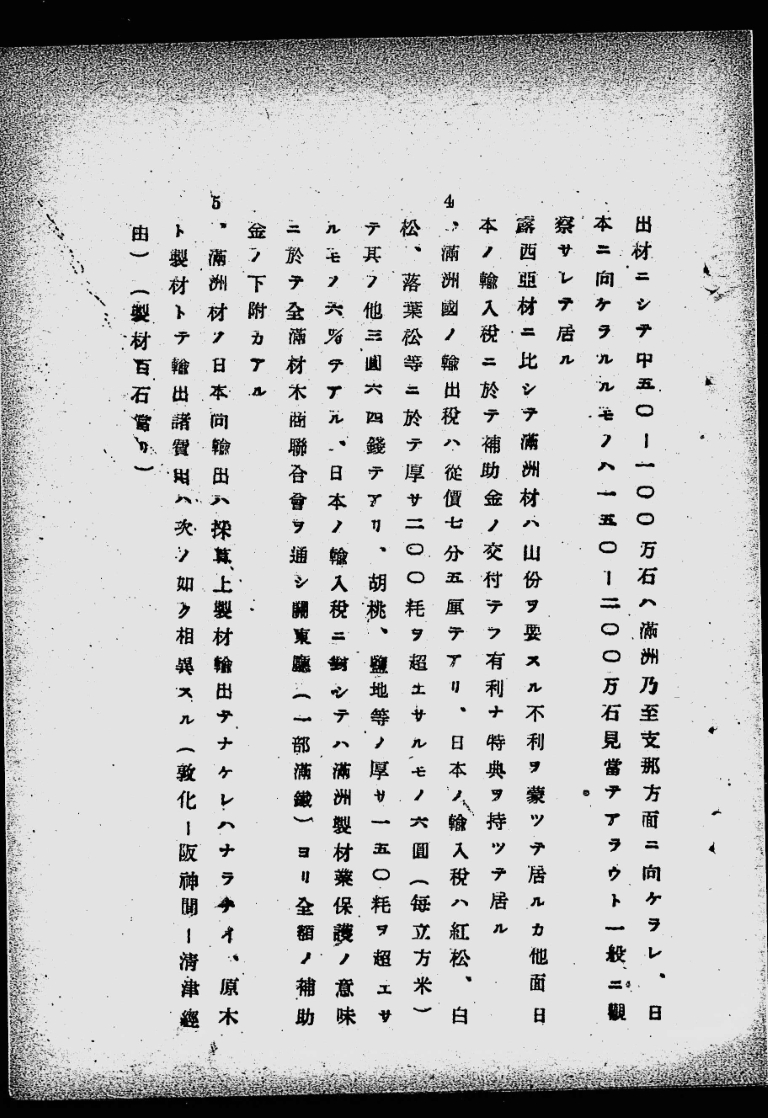 出材ニシテ中五〇ー一〇〇万石ハ滿洲乃至支那方面ニ向ケラレ、日
本ニ向ケラルルモノハ一五〇ー二〇〇万石見當テアラウト一般ニ觀
察サレテ居ル
露西亞材ニ比シテ滿洲材ハ山份ヲ要スル不利ヲ蒙ツテ居ルカ他面日
本ノ輸入税ニ於テ補助金ノ交付テフ有利ナ特典ヲ持ツテ居ル
4、滿洲國ノ輸出税ハ從價七分五厘テアリ、日本ノ輸入税ハ紅松、白
松、落葉松等ニ於テ厚サ二〇〇粍ヲ超エサルモノ六圓（每立方米）
テ其ノ他三圓六四錢テアリ、胡桃、鹽地等ノ厚サ一五〇粍ヲ超エサ
ルモノ六％テアル、日本ノ輸入税ニ對シテハ滿洲製材業保護ノ意味
ニ於テ全滿材木商聯合會ヲ通シ關東廳（一部滿鐵）ヨリ全額ノ補助
金ノ下附カアル
5、滿洲材ノ日本向輸出ハ採算上製材輸出テナケレハナラナイ、原木
ト製材トテ輸出諸費用ハ次ノ如ク相異スル（敦化ー阪神間ー淸津經
由）（製材百石當リ）